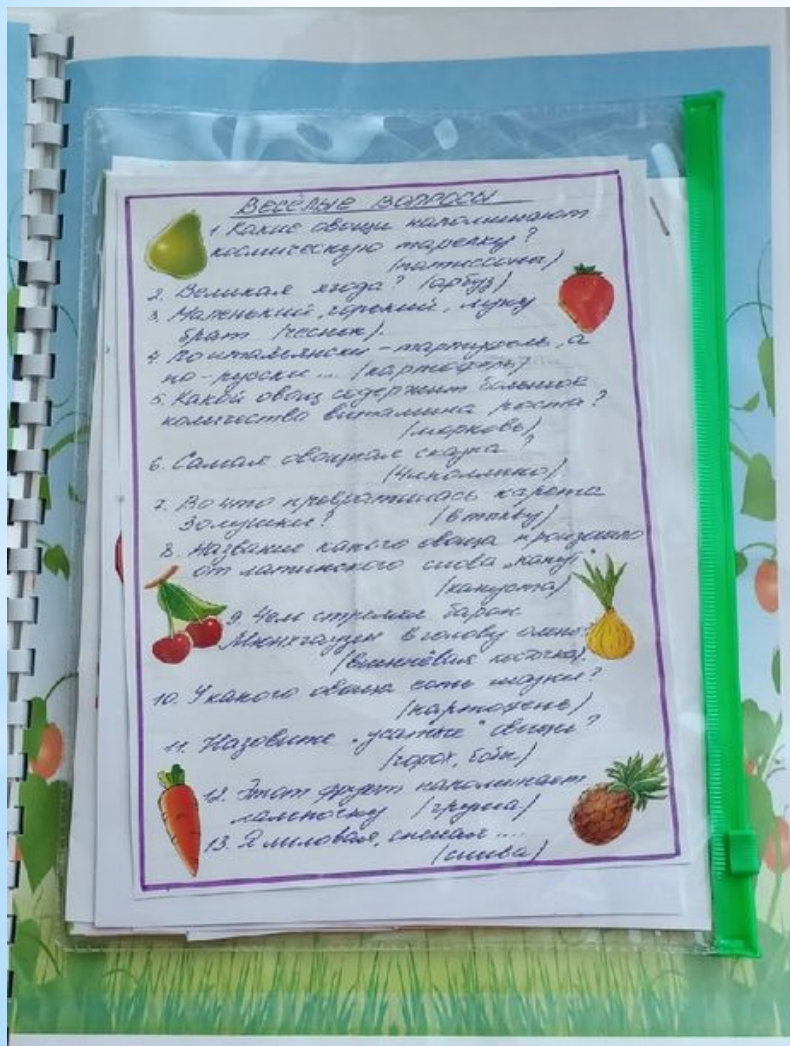 Весёлые вопросы
1 Какие овощи напоминают
космическую тарелку?
(патиссоны)
2. Великая ягода? (арбуз)
3. Маленький, горький, луку
брат (чеснок).
4. По итальянски - тартуфель, а
по-русски ... (картофель)
5. Какой овощ содержит большое
количество витамина роста?
(морковь)
6. Самая овощная сказка?
(Чиполлино)
7. Во что превратилась карета
Золушки? (в тыкву)
8. Название какого овоща произошло
от латинского слова „капут"
(капуста)
9 Чем стрелял барон
Мюнхгаузен в голову оленю?
(вишнёвая косточка).
10. У какого овоща есть глазки?
(картофель)
11. Назовите „усатые" овощи?
(горох, бобы.)
12. Этот фрукт напоминает
лампочку (груша)
13. Я лиловая, спелая ....
(слива)